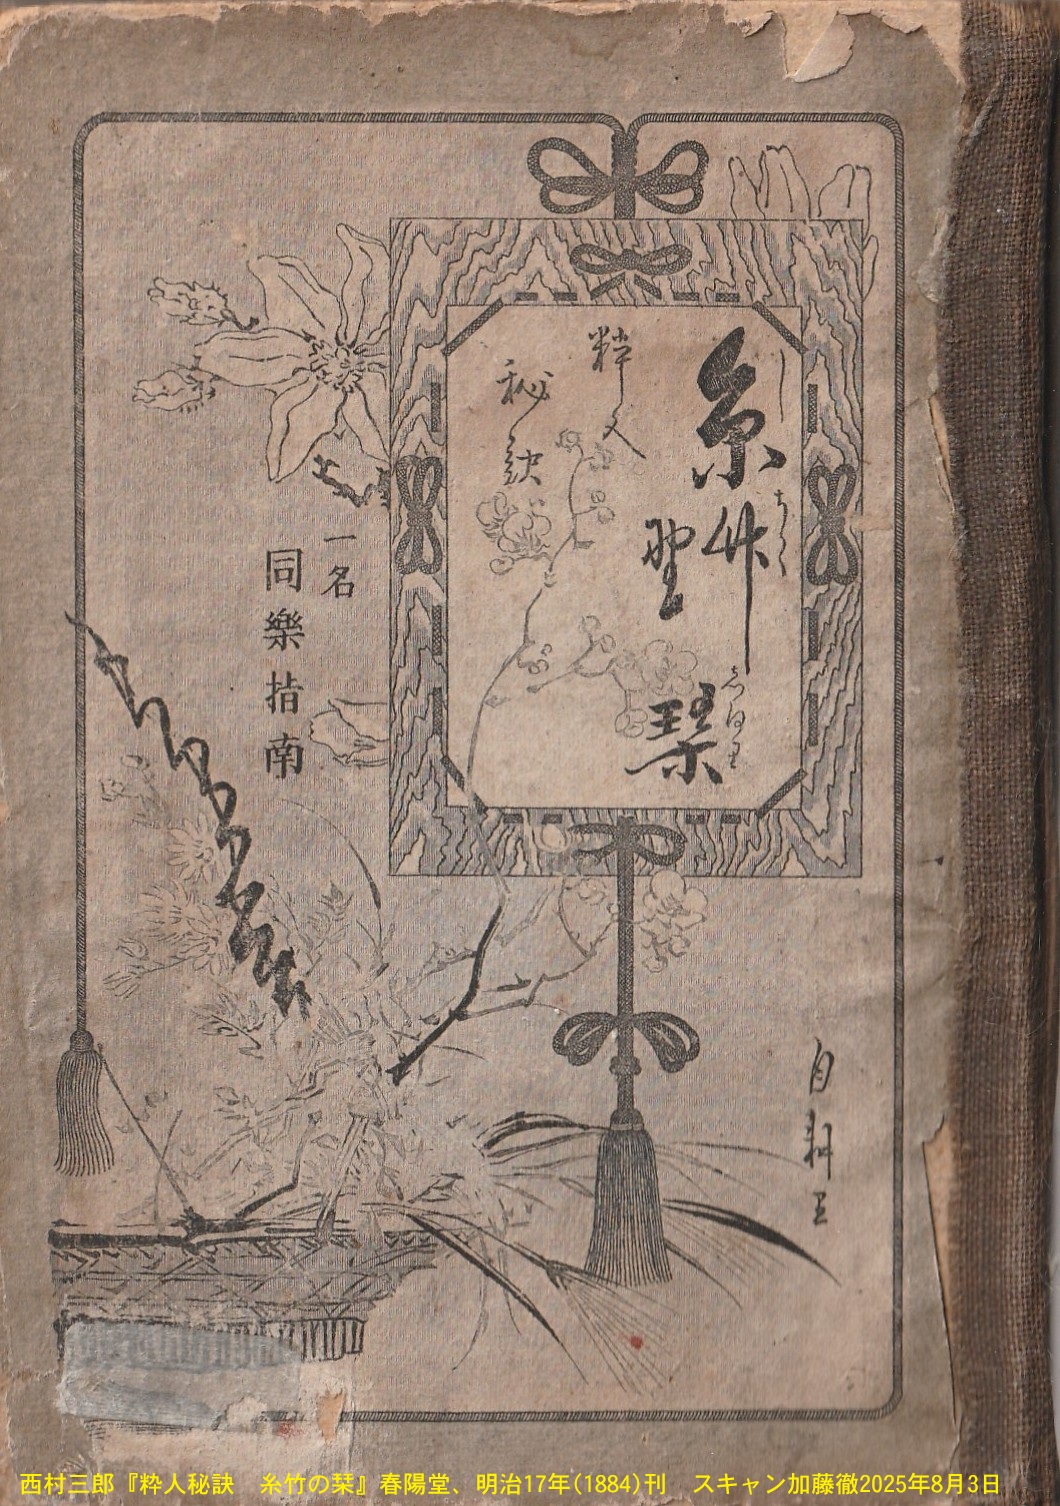 糸竹
しちく
琹
粹人
秘訣
一名
同樂指南
西村三郎『粋人秘訣　糸竹の栞』春陽堂、明治17年(1884)刊　スキャン加藤徹2025年8月3日